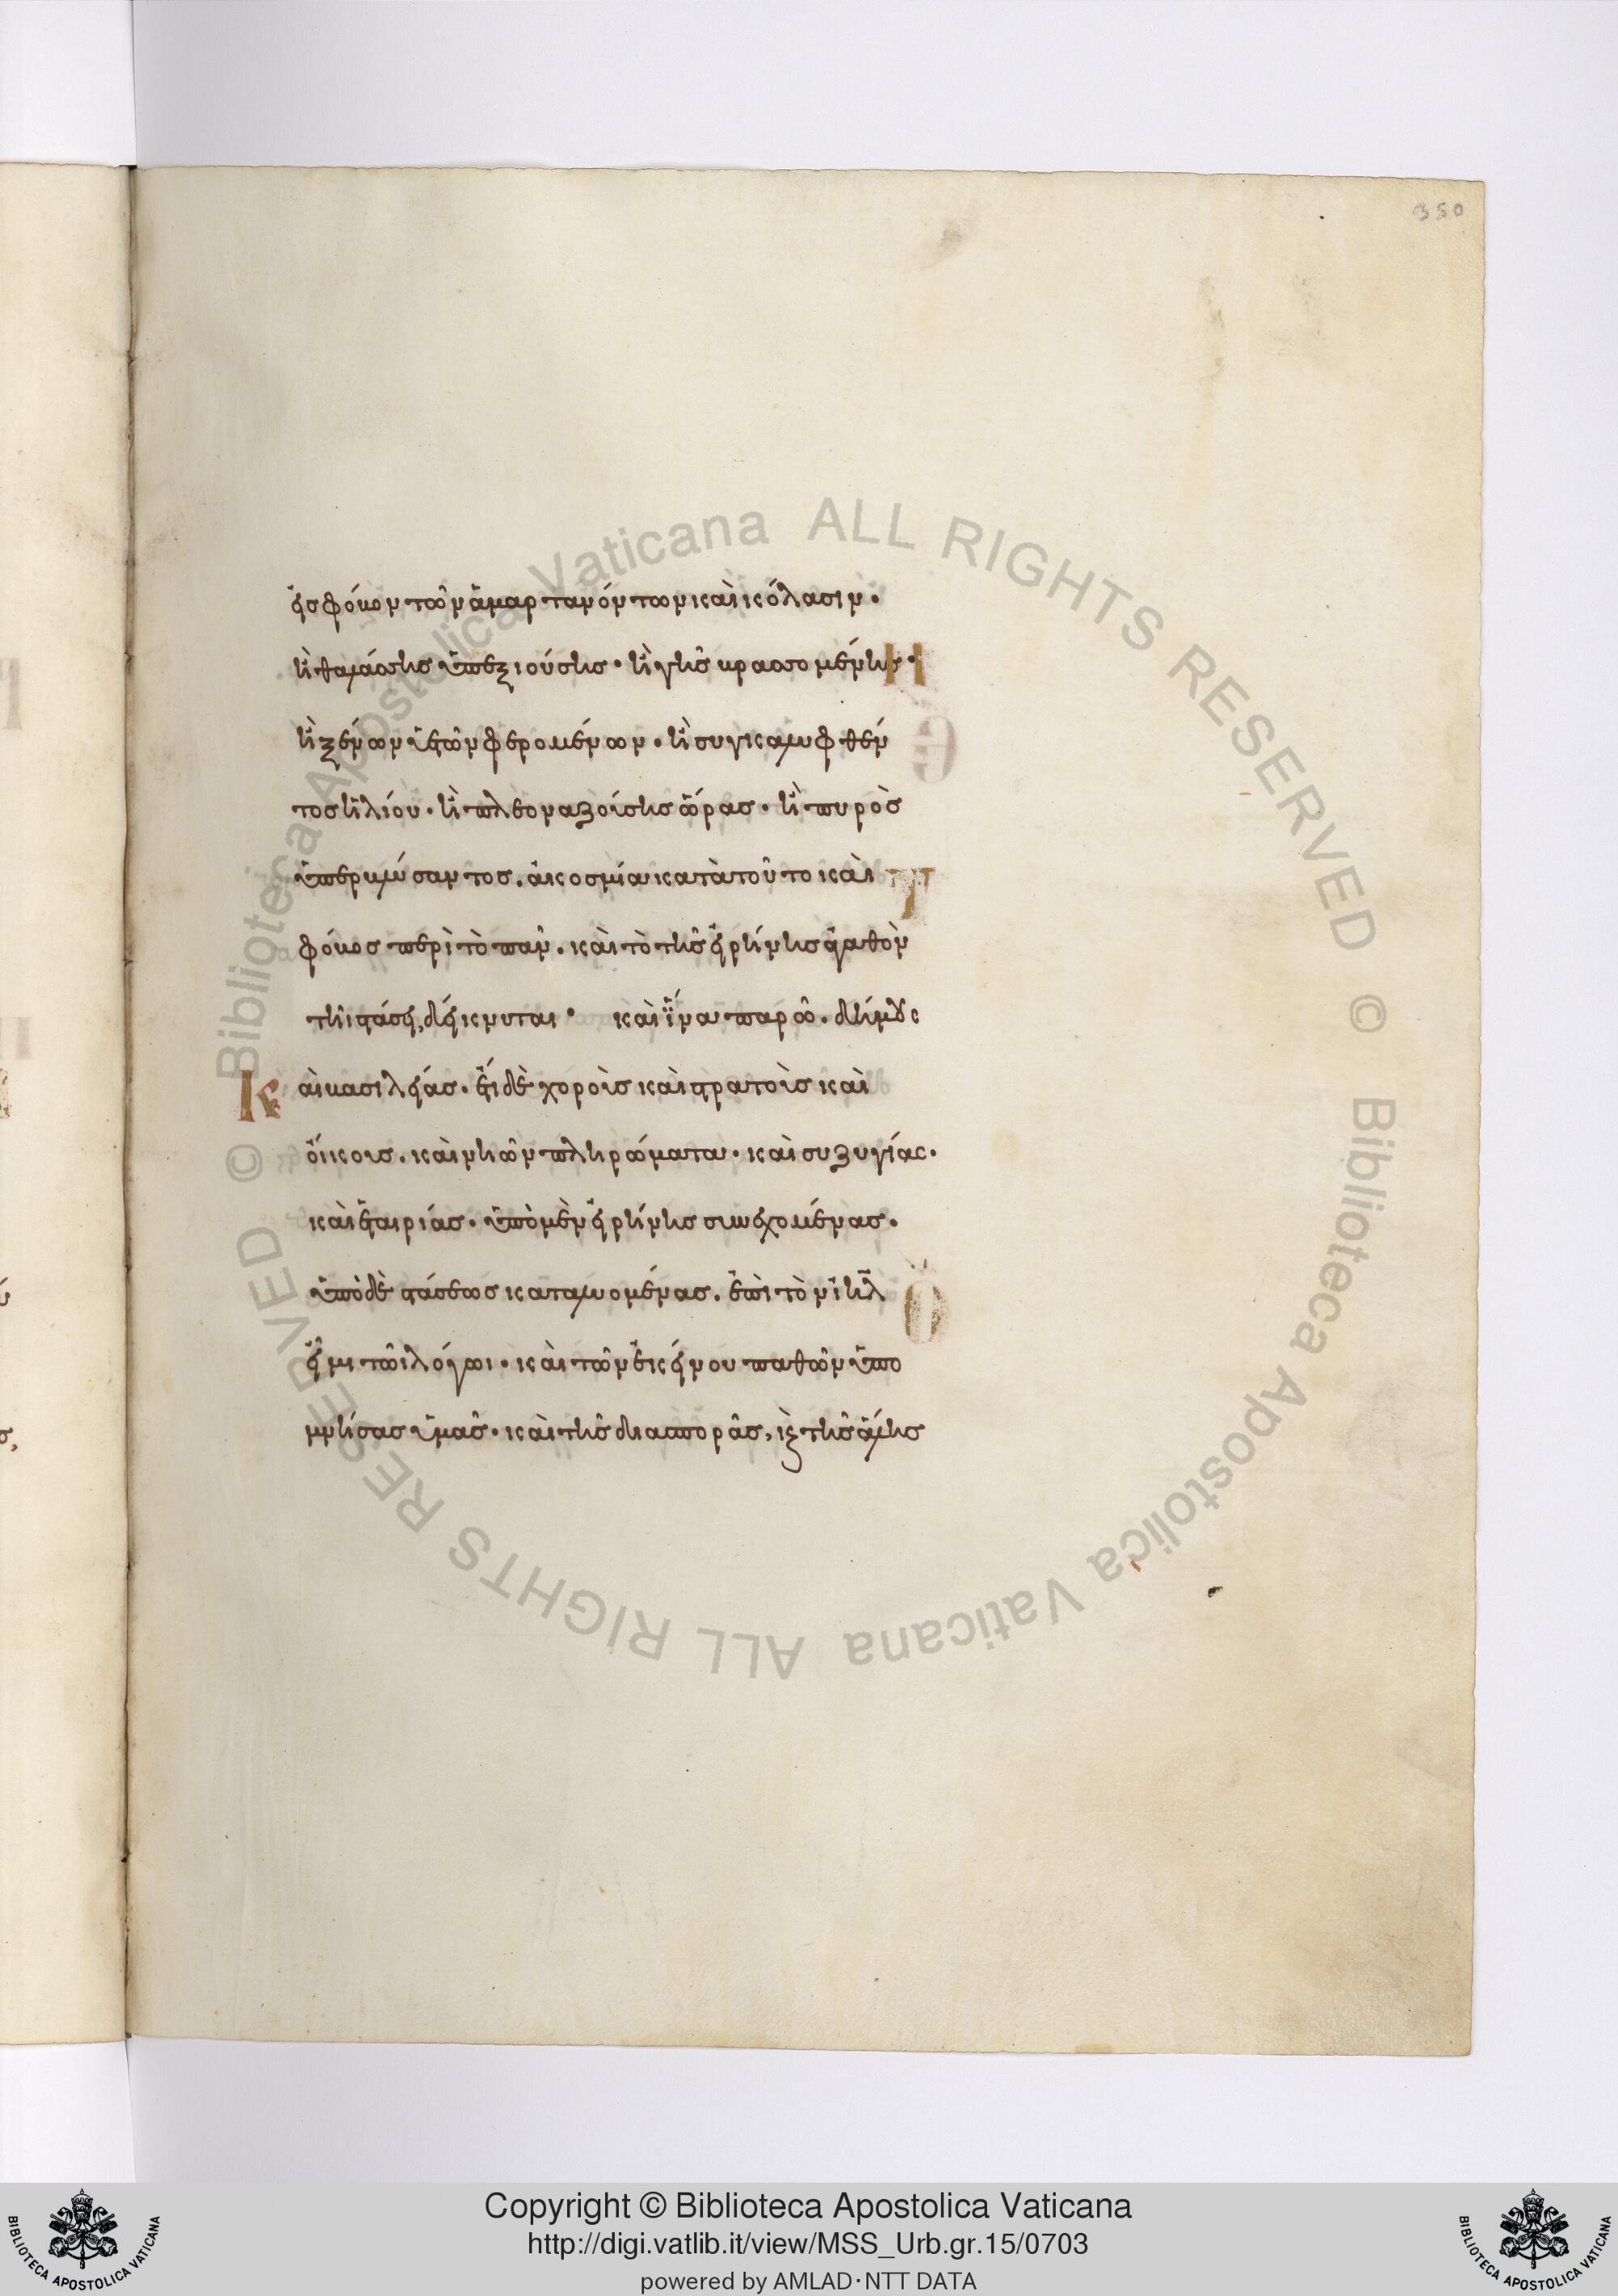 350
εἰς φόβον τῶν ἁμαρτανόντων καὶ κόλασιν·
ἢ θαλάσσης ὑπεξιούσης· ἢ γῆς βρασσομένης·
ἢ ξένων ὑετῶν φερομένων· ἢ συγκαλυφθέν
τος ἡλίου· ἢ πλεοναζούσης ὥρας· ἢ πυρὸς
ὑπερβλύσαντος. ἀκοσμία κατὰ τοῦτο καὶ
φόβος περὶ τὸ πᾶν. καὶ τὸ τῆς εἰρήνης ἀγαθὸν
τῆι στάσει, δείκνυται· καὶ ἵνα παρῶ. δήμους
καὶ βασιλείας· ἔτι δὲ χοροῖς καὶ στρατοῖς καὶ
οἴκοις. καὶ νηῶν πληρώματα· καὶ συζυγίας·
καὶ ἑταιρίας· ὑπὸ μὲν εἰρήνης συνεχομένας·
ὑπὸ δὲ στάσεως καταλυομένας. ἐπὶ τὸν ιηλ
εἶμι τῶι λόγωι· καὶ τῶν ἐκείνου παθῶν ὑπο
μνήσας ὑμᾶς· καὶ τῆς διασπορᾶς, κ ξ τῆς ἄλης
Copyright © Biblioteca Apostolica Vaticana
http://digi.vatlib.it/view/MSS_Urb.gr.15/0703
powered by AMLAD·NTT DATA
BIBLIOTECA APOSTOLICA VATICANA
BIBLIOTECA APOSTOLICA VATICANA
© Biblioteca Apostolica Vaticana ALL RIGHTS RESERVED
© Biblioteca Apostolica Vaticana ALL RIGHTS RESERVED